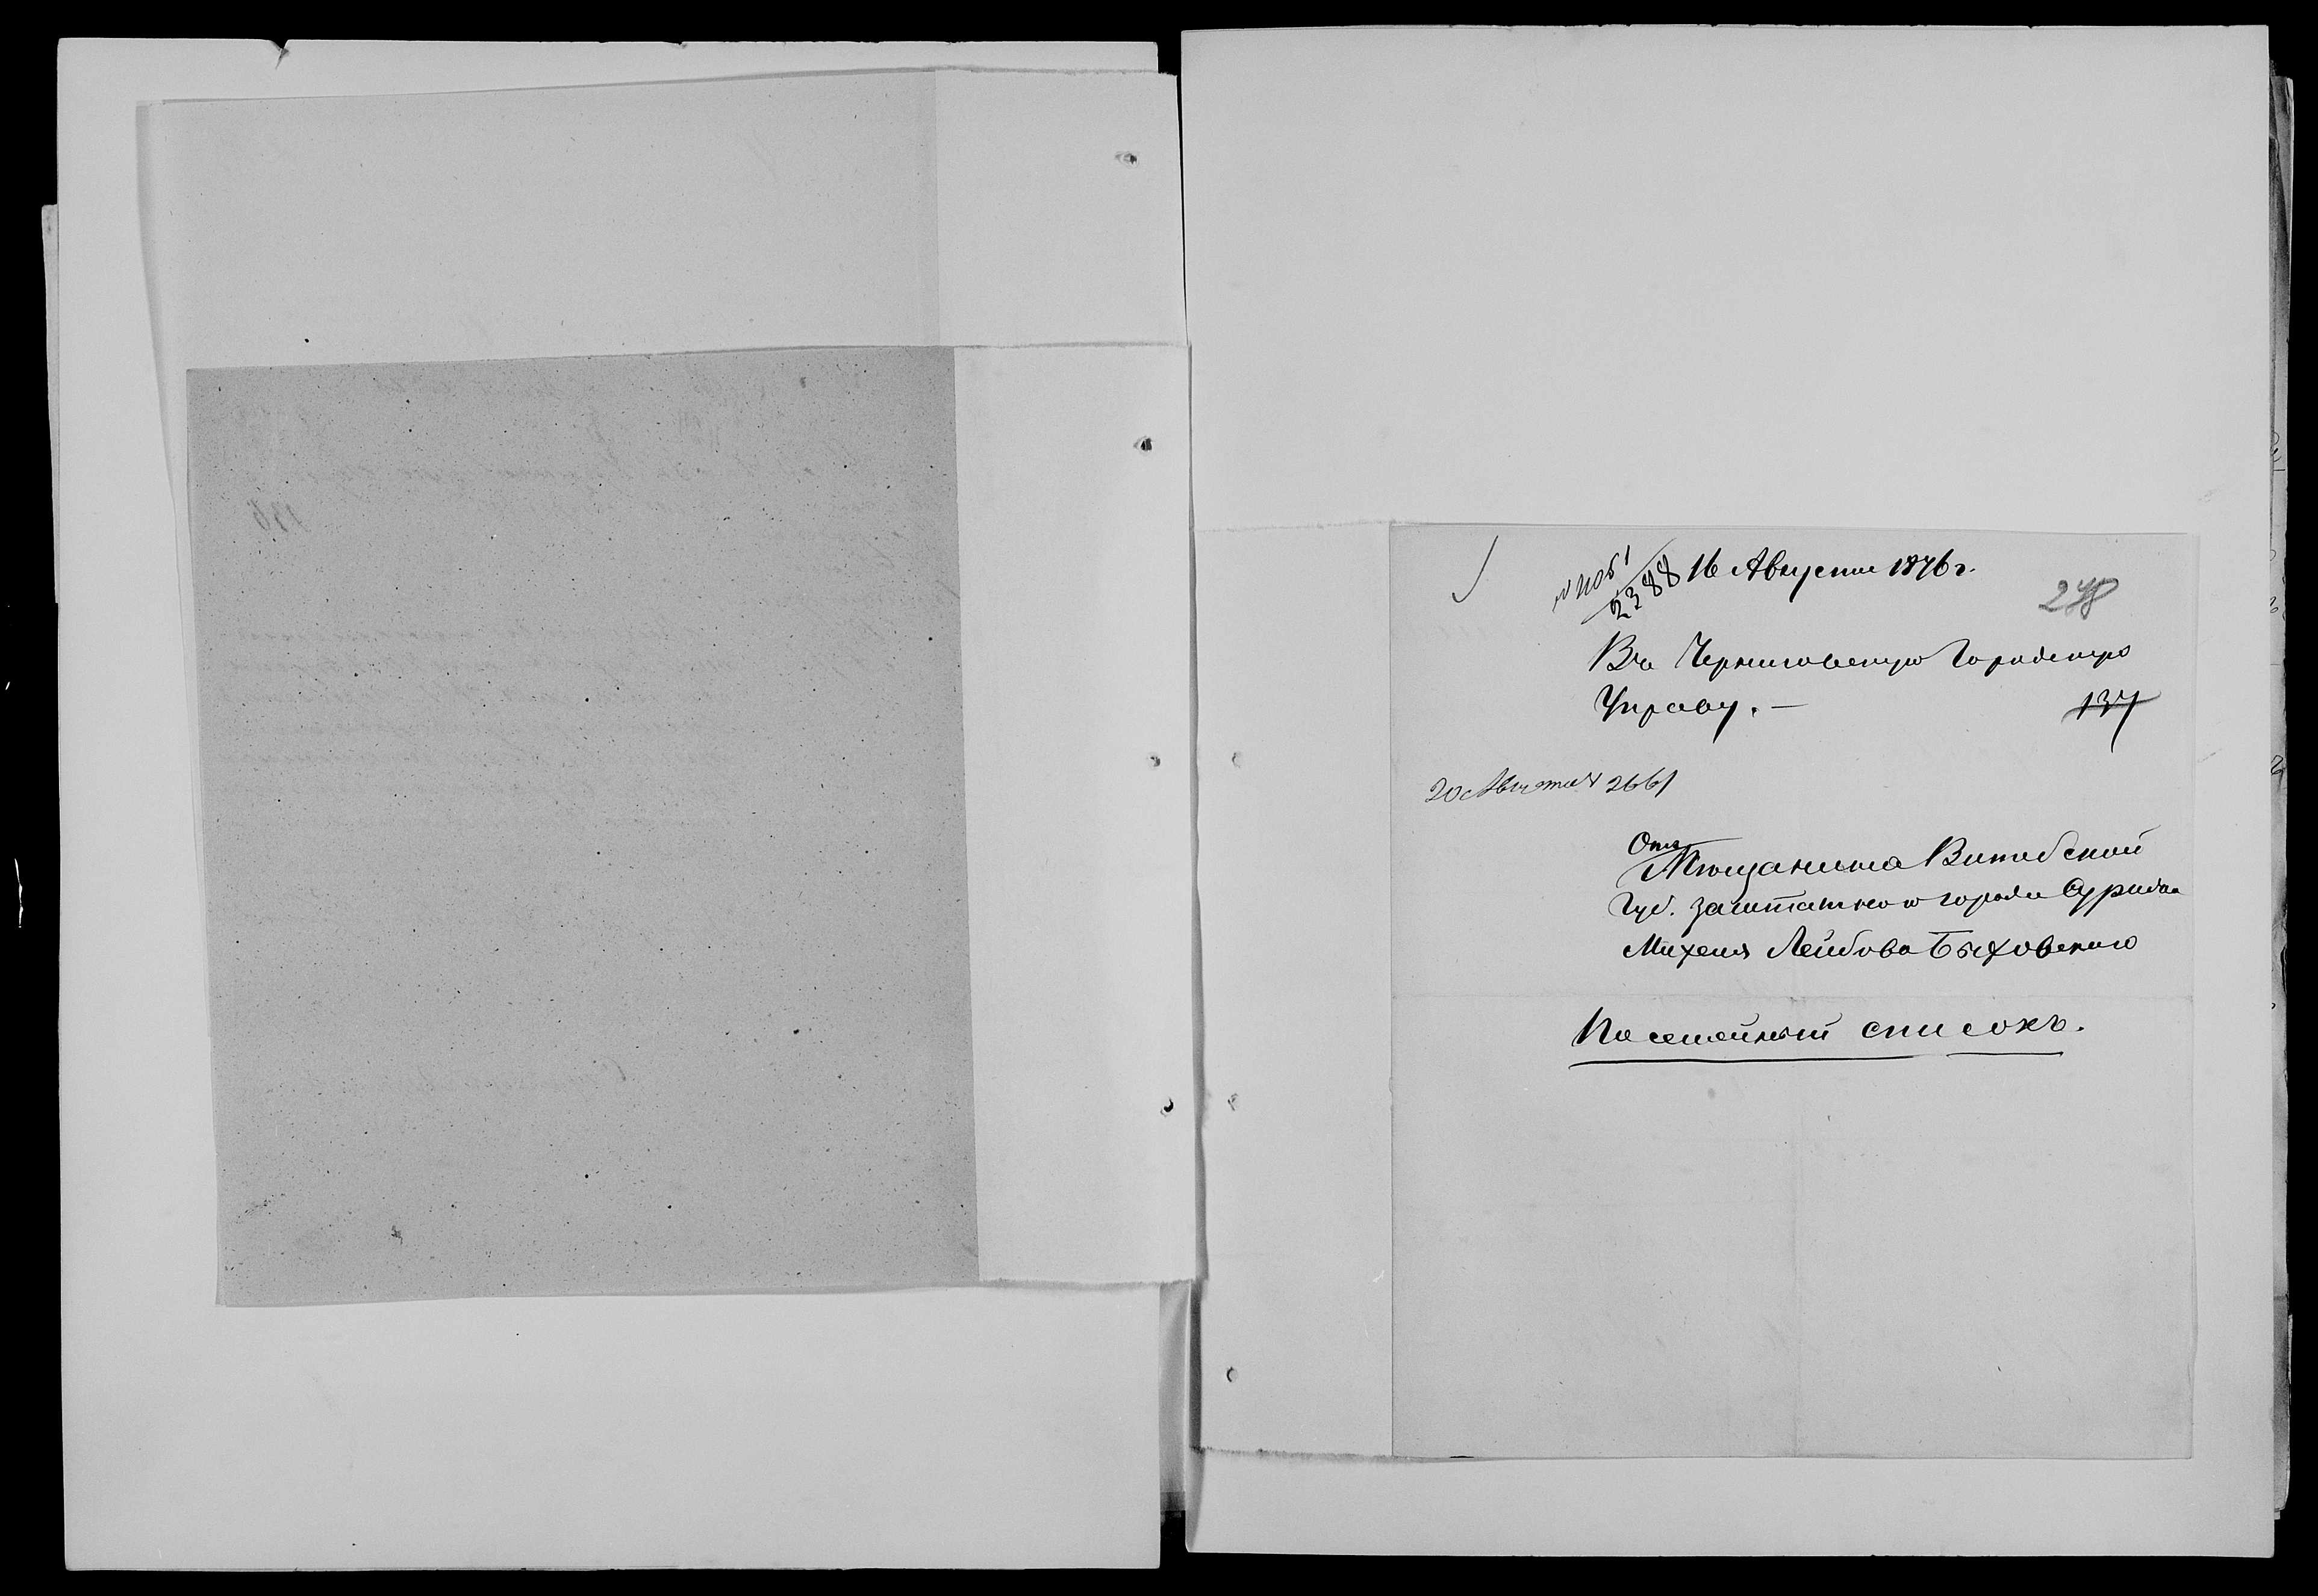 2388 16 Августа 1876 г.
278
Въ Черниговскую Городскую
Управу. —
137
20 Августа № 2661
Отъ
Мѣщанина Витебской
Губ. заштатного города Суража
Михеля Лейбова Быховского
Посемейный списокъ.